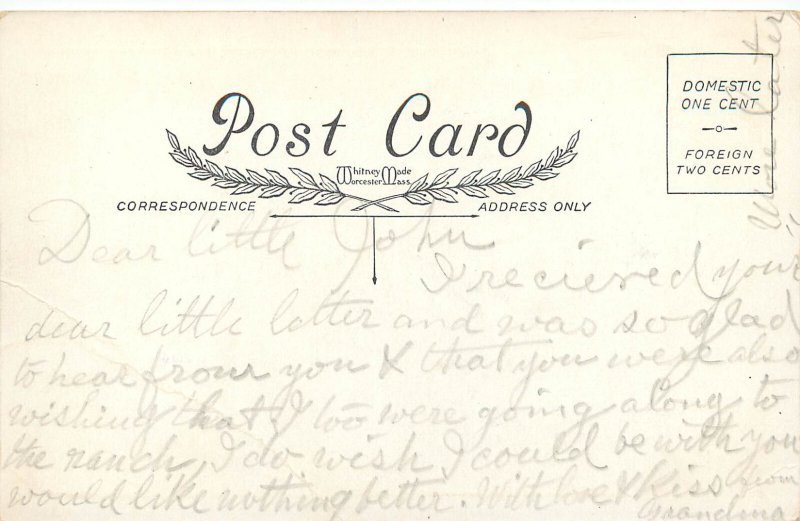 Post Card
Whitney Made
Worcester Mass.
DOMESTIC
ONE CENT
FOREIGN
TWO CENTS
CORRESPONDENCE
ADDRESS ONLY
Dear little John
I recieved your
dear little letter and was so glad
to hear from you & that you were also
wishing that I too were going along to
the ranch, I do wish I could be with you
would like nothing better. With love & Kiss from
Grandma